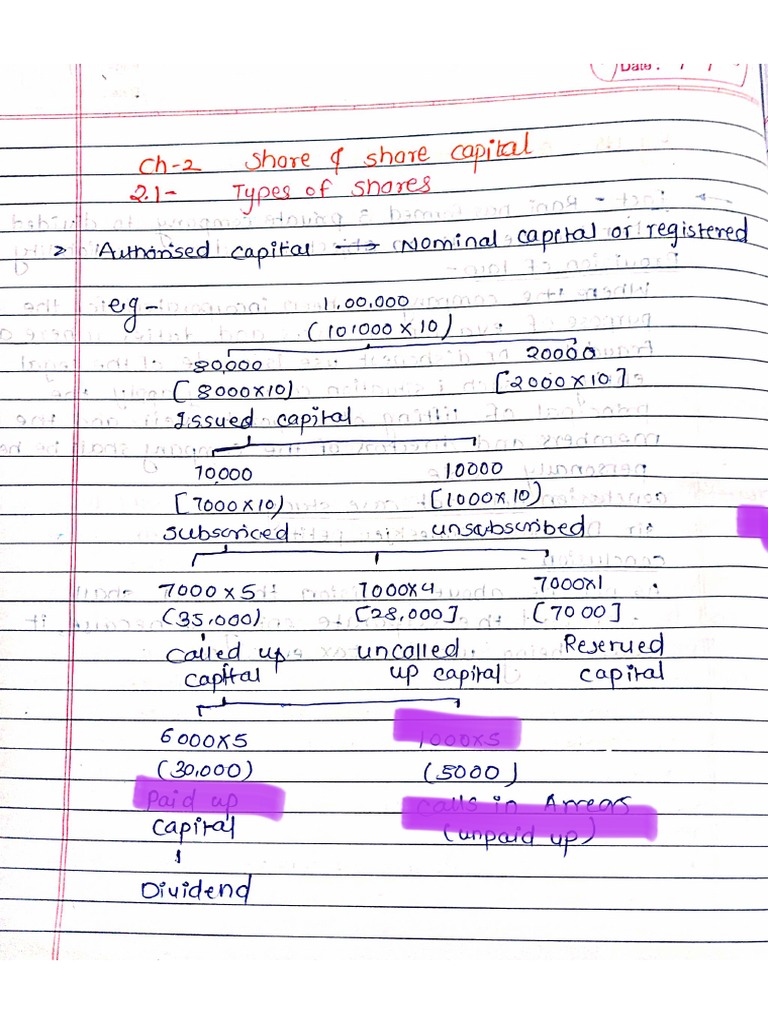 Date : / /
Ch-2 Share & share capital
2.1- Types of shares
> Authorised capital → Nominal capital or registered
eg - 1,00,000
(101000 x 10)
80,000 20000
[8000x10) [2000x10]
Issued capital
70,000 10000
[7000x10) [1000x10)
Subscriced unsubscribed
7000 x 5 7000x4 7000x1
(35,000) [28,000] [7000]
Called up uncalled. Reserved
capital up capital capital
6000x5 1000x5
(30,000) (5000)
Paid up calls in Arrears
capital (unpaid up)
Dividend